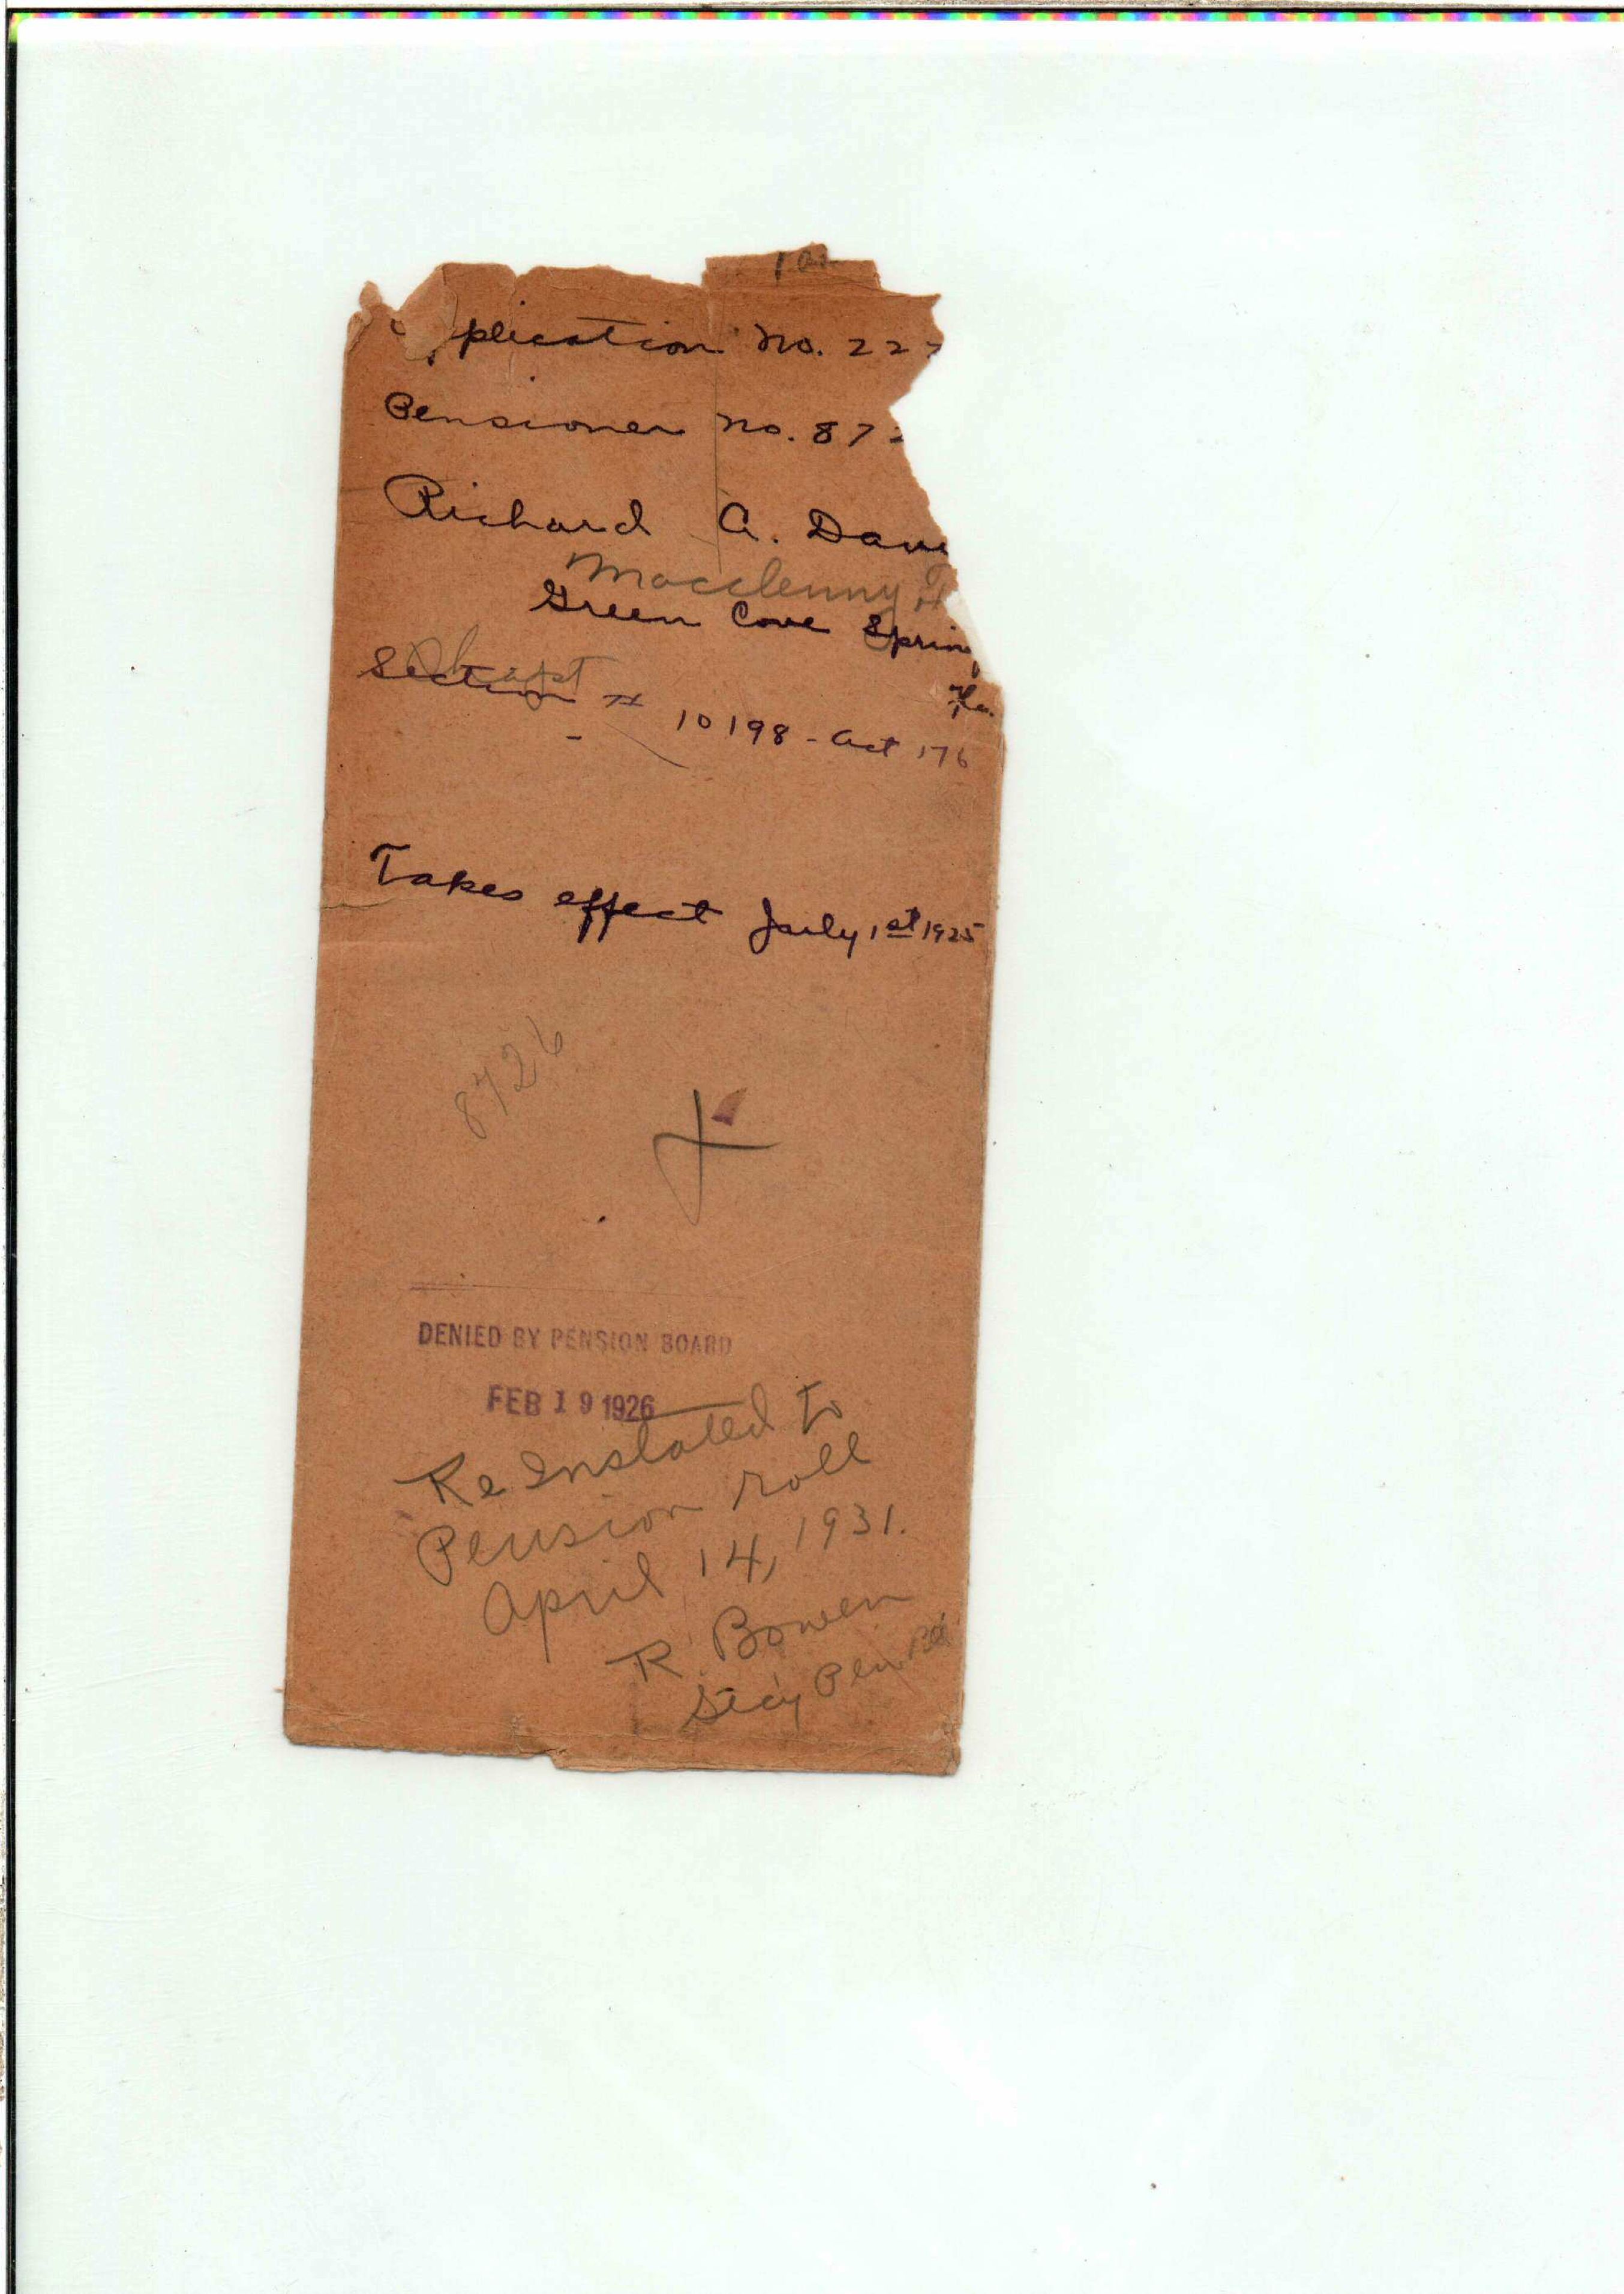 Application No. 227
Pensioner No. 872
Richard A. Davi
Macclenny Fl
Green Cove Spring
Fla.
Chapt
Section # 10198 - Act 176
Takes effect July 1st 1925
8726
DENIED BY PENSION BOARD
FEB 19 1926
Re Instated to
Pension roll
April 14, 1931.
R. Bowen
Secy Pen Bd